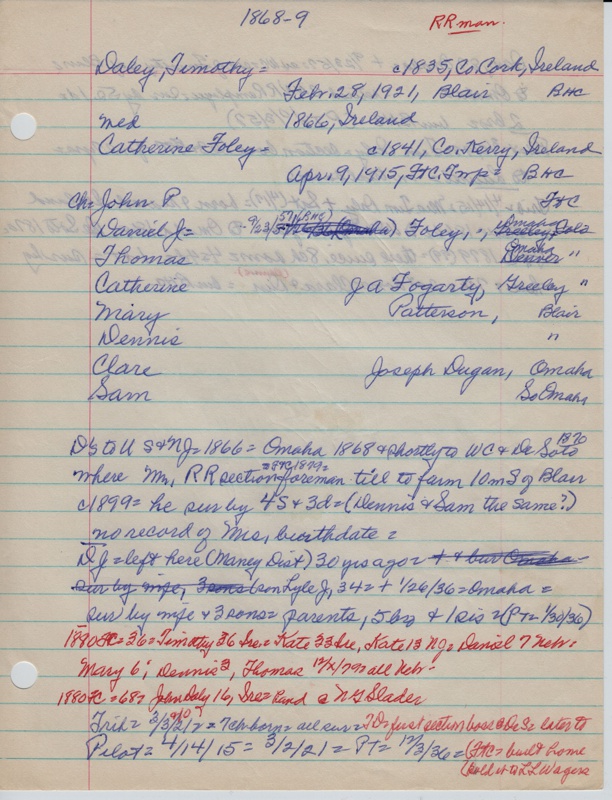 1868-9
RR man.
Daley, Timothy = c1835, Co. Cork, Ireland
Febr. 28, 1921, Blair BHC
med 1866, Ireland
Catherine Foley = c1841, Co. Kerry, Ireland
Apr. 9, 1915, FtC. Imp = BHC
Ch = John P. FtC
Daniel J = - 9/23/57 (BHC) Foley, ", Omaha Greeley, Colo
Thomas Omaha Denver "
Catherine J A Fogarty, Greeley "
Mary Patterson, Blair
Dennis "
Clare Joseph Dugan, Omaha
Sam So Omaha
D's to U S & NJ = 1866 = Omaha 1868 & shortly to WC & De Soto 1870
where Mr, RR section foreman till to farm 10 m S of Blair
c1899 = he sur by 4 S & 3 d = (Dennis & Sam the same?)
no record of Mrs, birthdate =
D J = left here (Maney Dist) 30 yrs ago = + & bur Omaha -
sur by wife, 3 sons (son Lyle J, 34 = + 1/26/36 = Omaha =
sur by wife & 3 sons = parents, 5 bz & 1 sis = (PT = 1/30/36)
1880 FC = 36 = Timothy 36 Ire = Kate 33 Ire, Kate 13 NJ = Daniel 7 Neb -
Mary 6, Dennis 3, Thomas 12/4/79 = all Neb -
1880 FC = 68 = John Daly 16, Ire = hand c N G Slader
Trib = 3/3/21 = 7 ch born = all sur = TD = first section boss @ DeS = later to
Pilot = 4/14/15 = 3/2/21 = PT = 12/3/36 = (FtC = built home
(sold it to L L Wagers